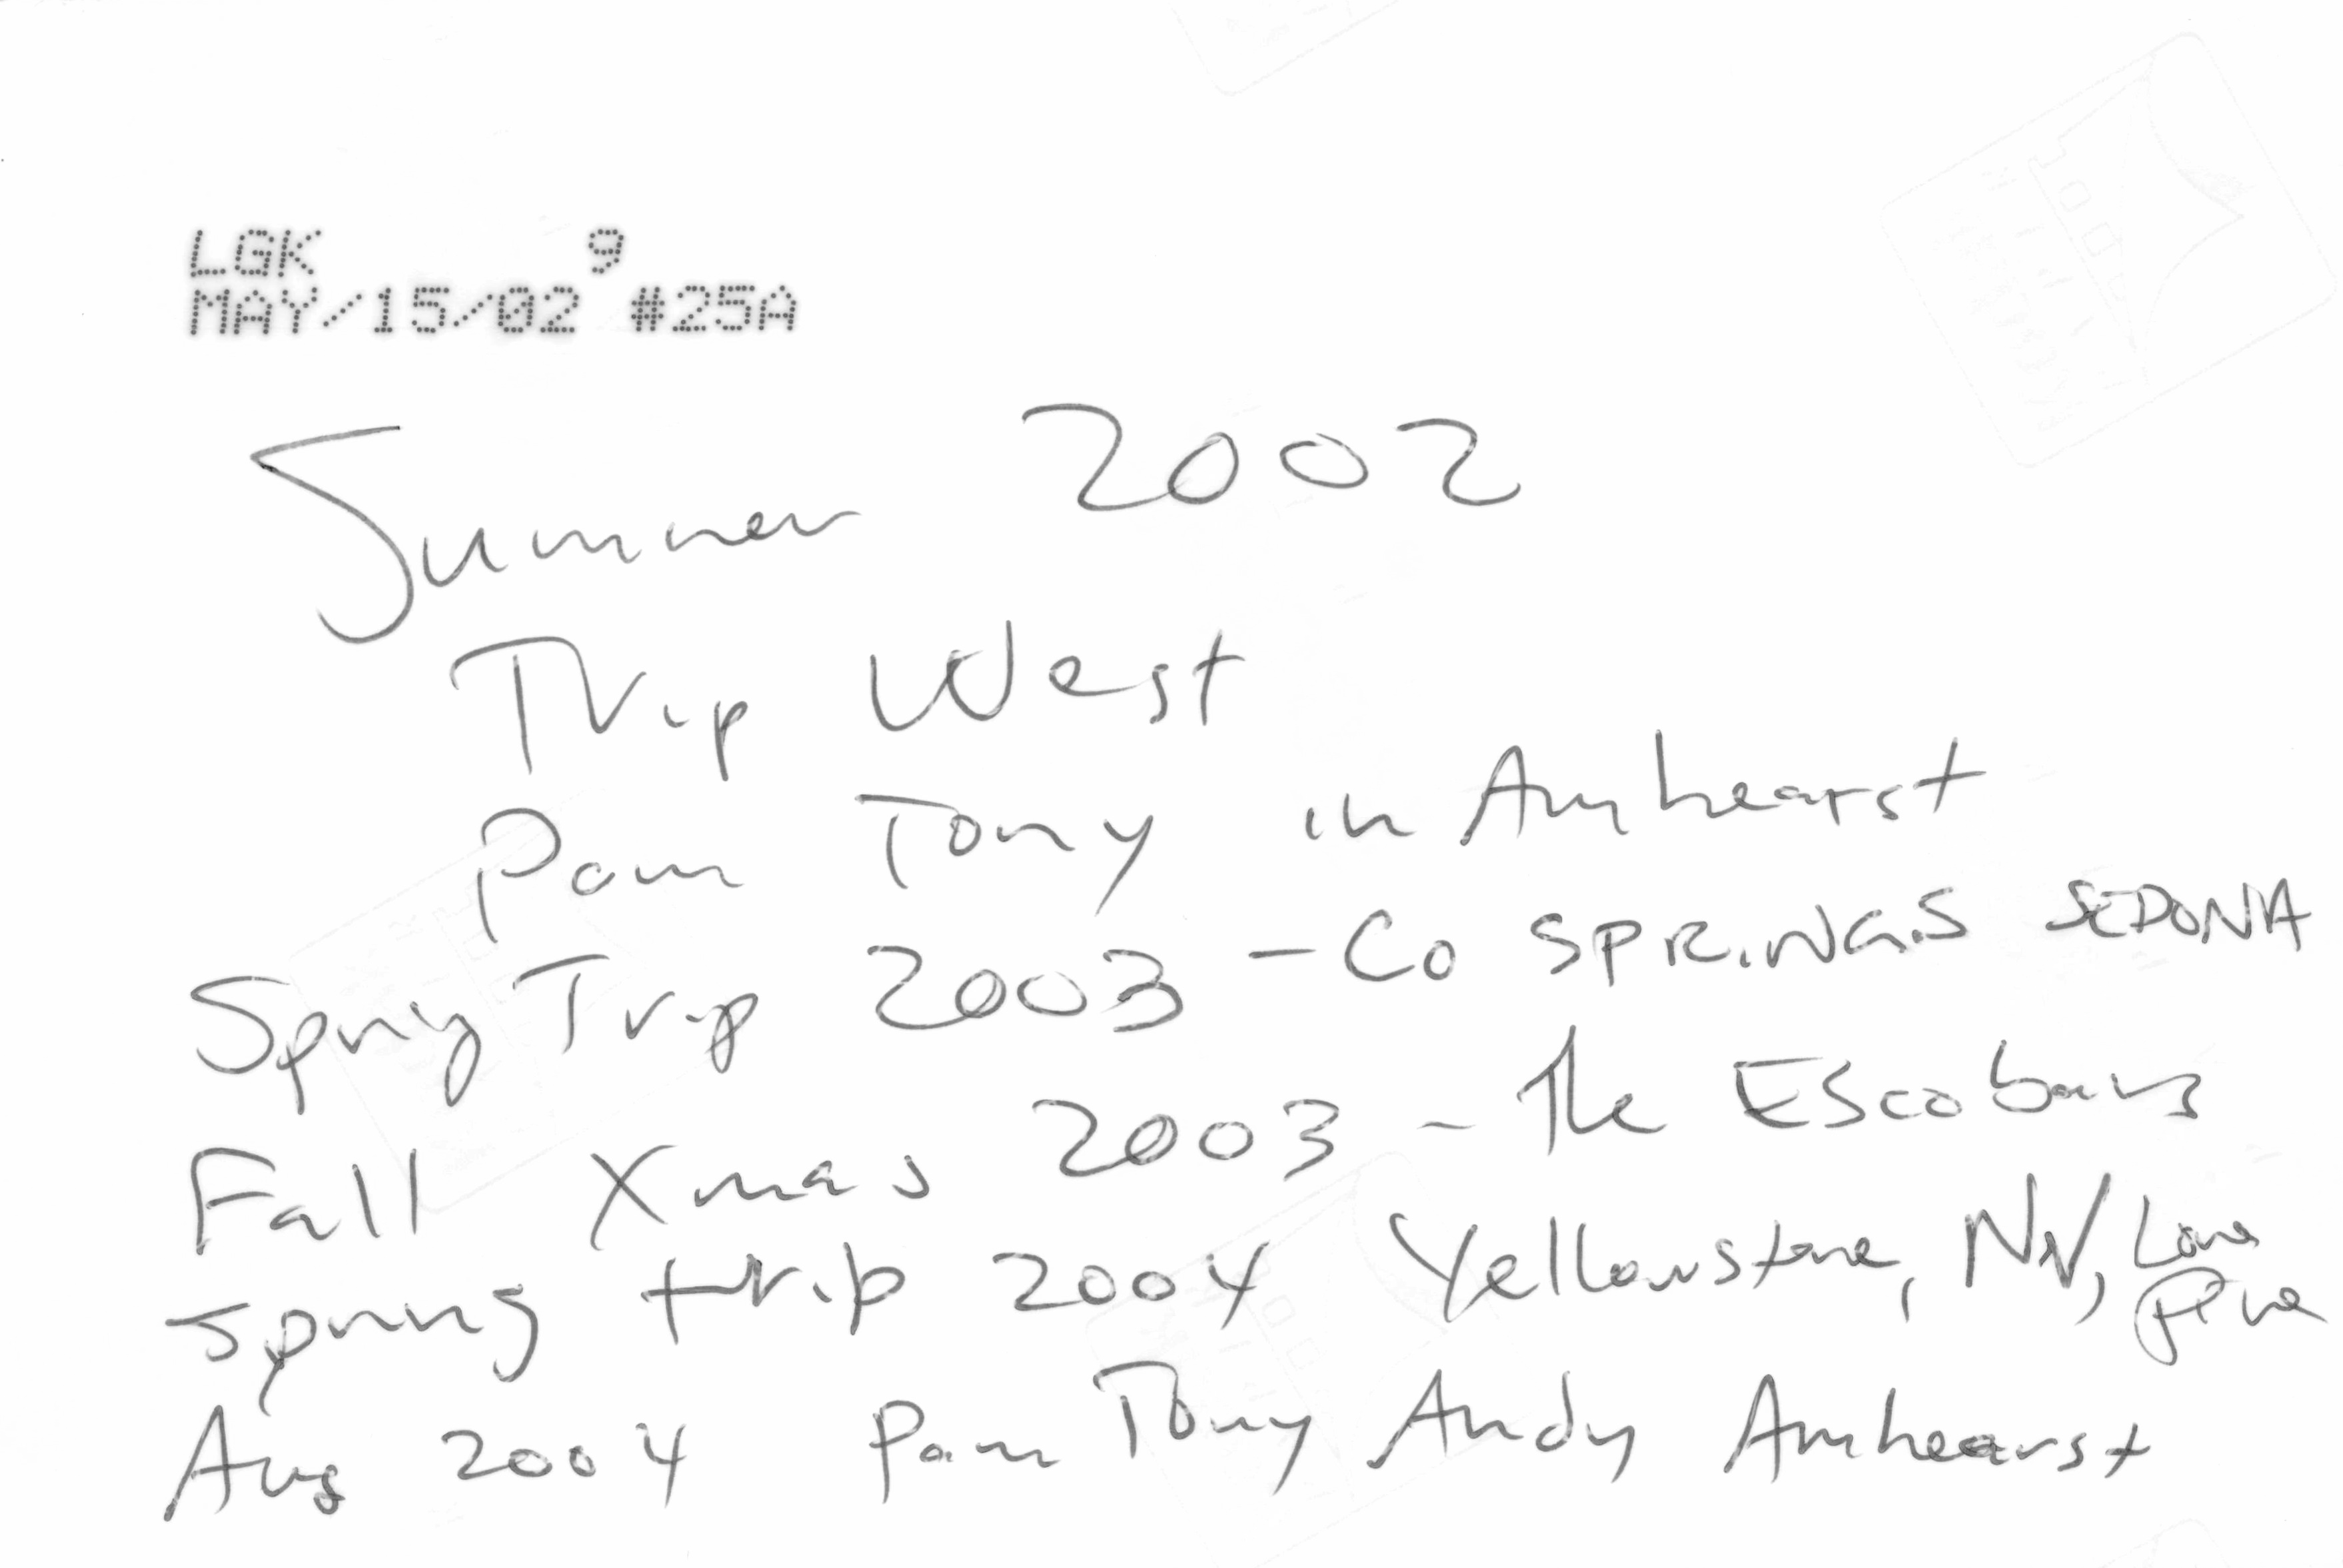 LGK 9
MAY/15/02 #25A
Summer 2002
Trip West
Pam Tony in Amhearst
Spring Trip 2003 - Co SPRINGS SEDONA
Fall Xmas 2003 - The Escobars
Spring trip 2004 Yellowstone, NV, Lone Pine
Aug 2004 Pam Tony Andy Amhearst